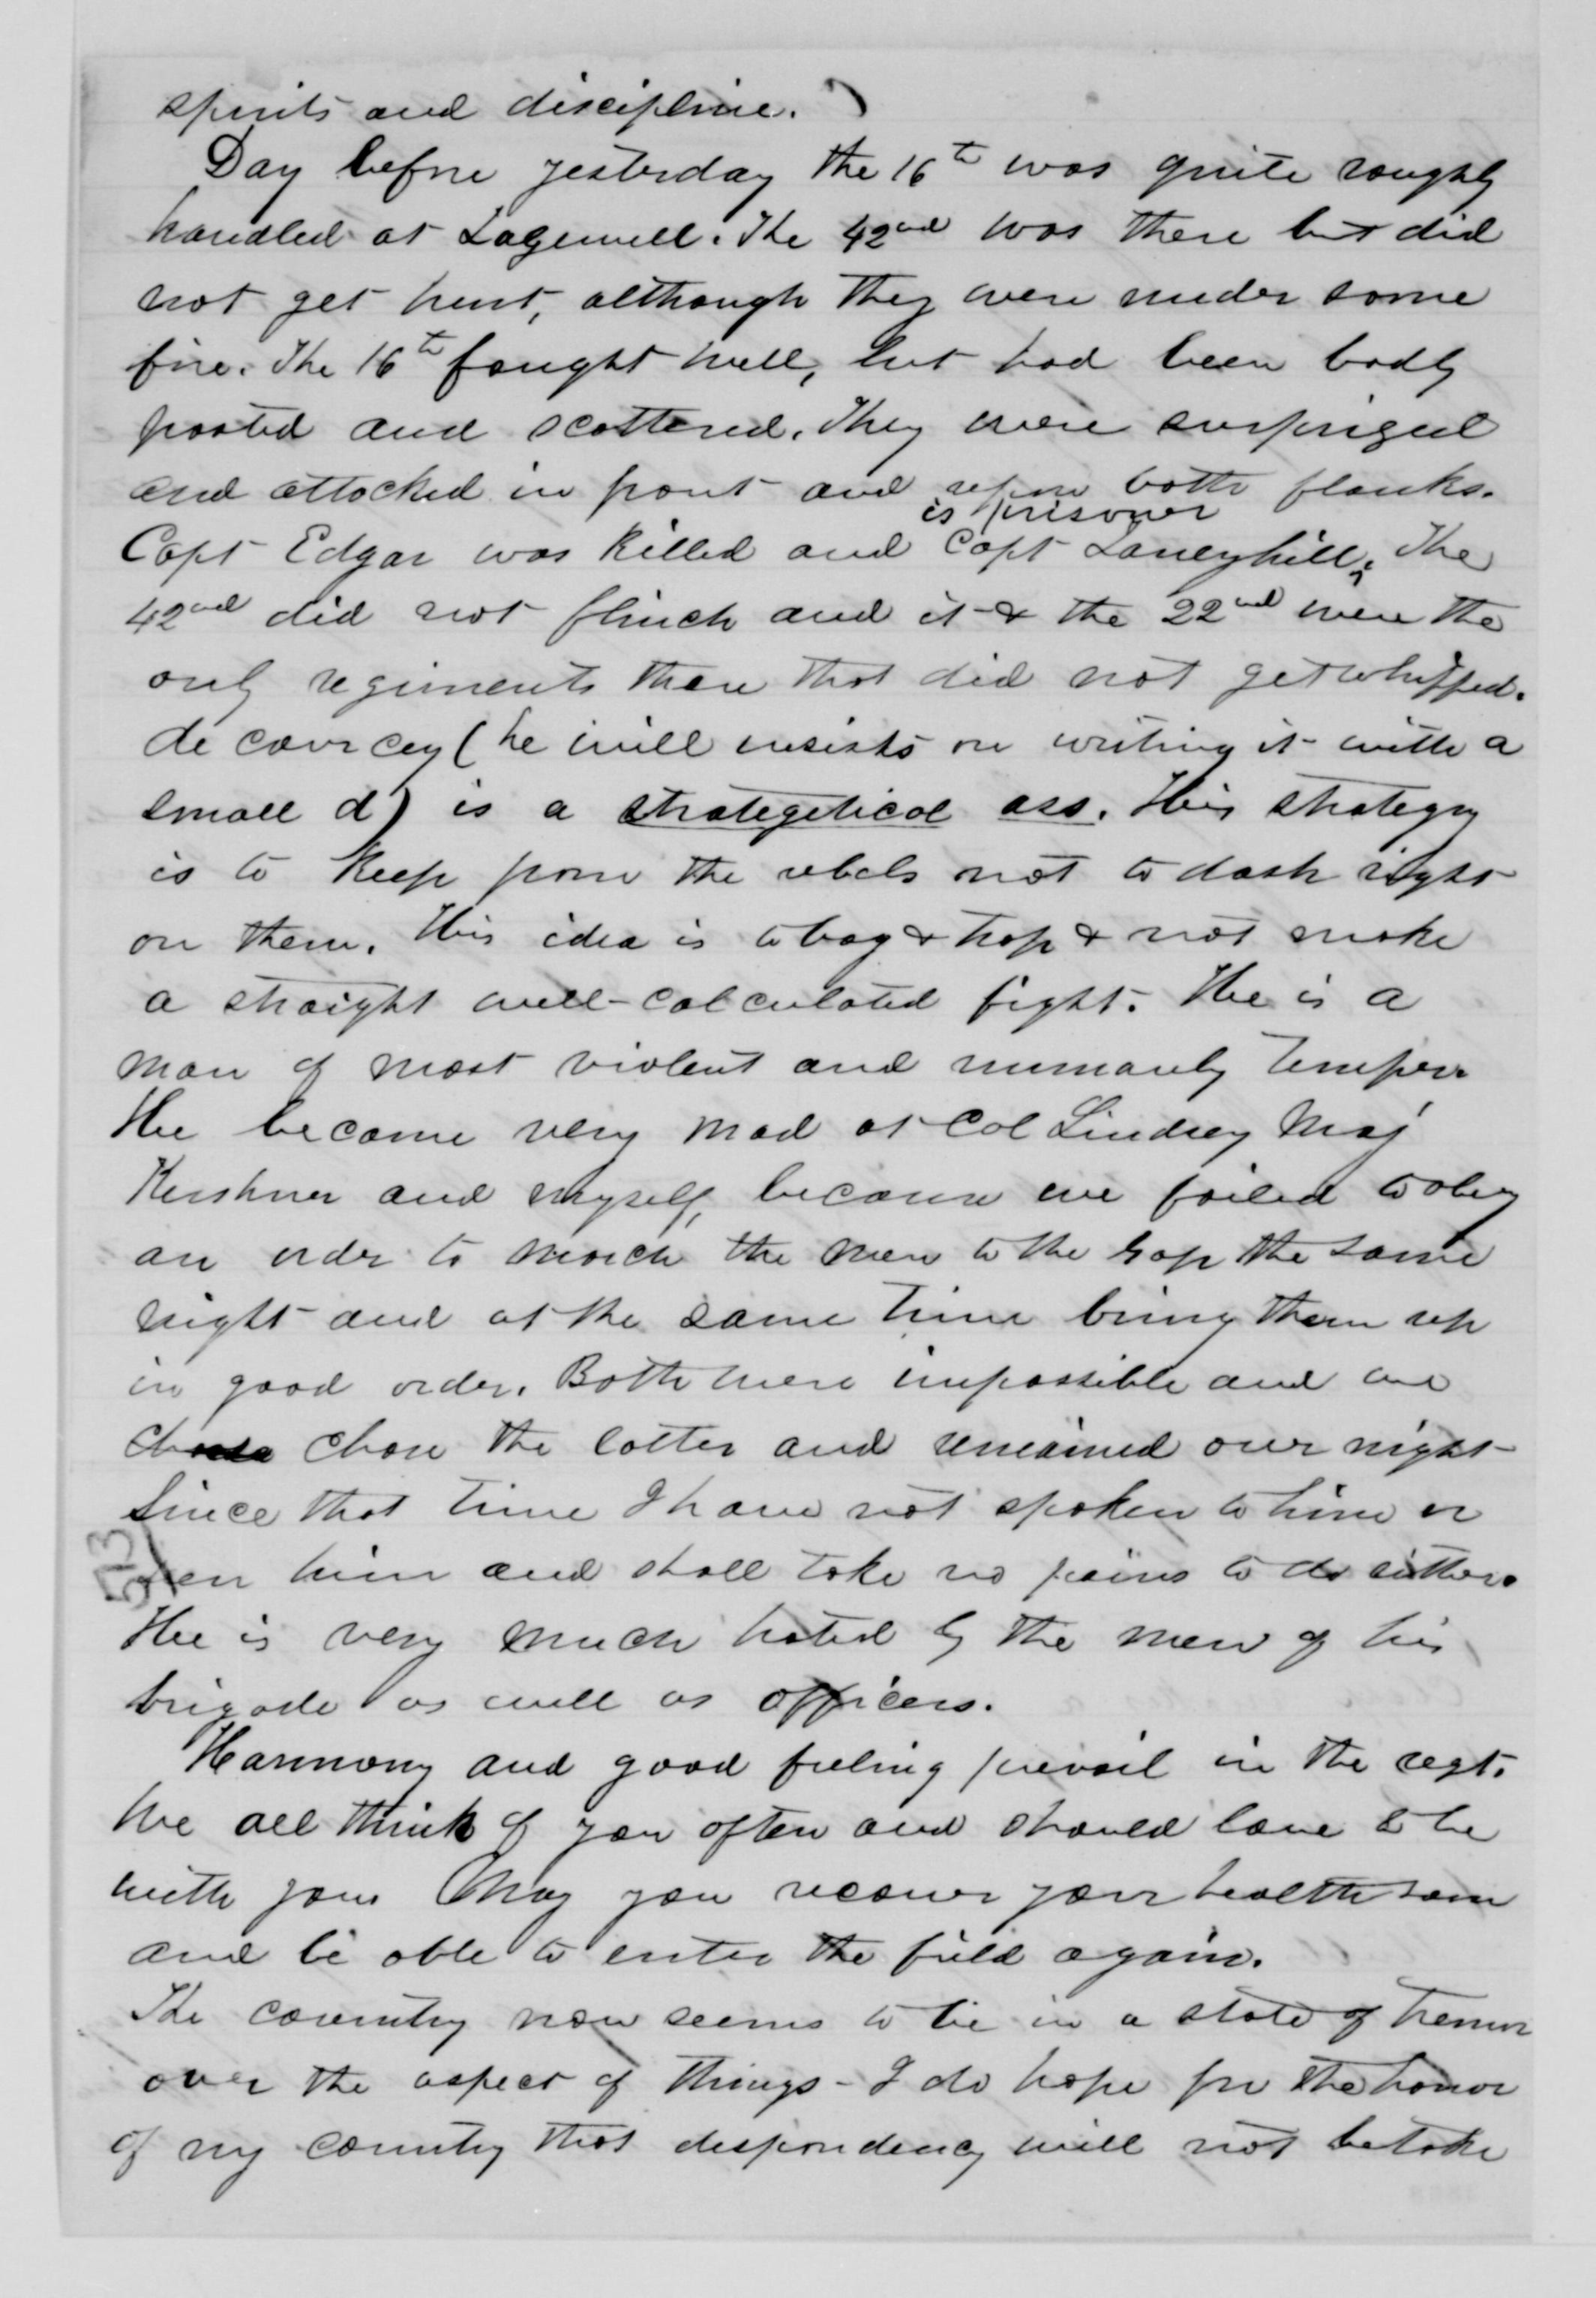 spirits and discipline.
Day before yesterday the 16th was quite roughly
handled at Tazewell. The 42nd was there but did
not get hurt, although they were under some
fire. The 16th fought well, but had been badly
posted and scattered. They were surprized
and attacked in front and upon both flanks.
is prisoner
Capt Edgar was killed and Capt Taneyhill. The
42nd did not flinch and it & the 22nd were the
only regiments there that did not get whipped.
de courcey (he will insists on writing it with a
small d) is a strategetical ass. His strategy
is to keep from the rebels not to dash right
on them. His idea is to bag & trap & not make
a straight well-calculated fight. He is a
man of most violent and unmanly temper.
He became very mad at Col Lindsey Maj
Kershner and myself, because we failed to obey
an order to march the men to the Gap the same
night and at the same time bring them up
in good order. Both were impossible and we
chose the latter and remained over night
Since that time I have not spoken to him or
seen him and shall take no pains to do either.
He is very much hated by the men of his
brigade as well as officers.
Harmony and good feeling prevail in the regt.
We all think of you often and should love to be
with you. May you recover your health soon
and be able to enter the field again.
The country now seems to be in a state of tremor
over the aspect of things - I do hope for the honor
of my country that despondency will not betake
513